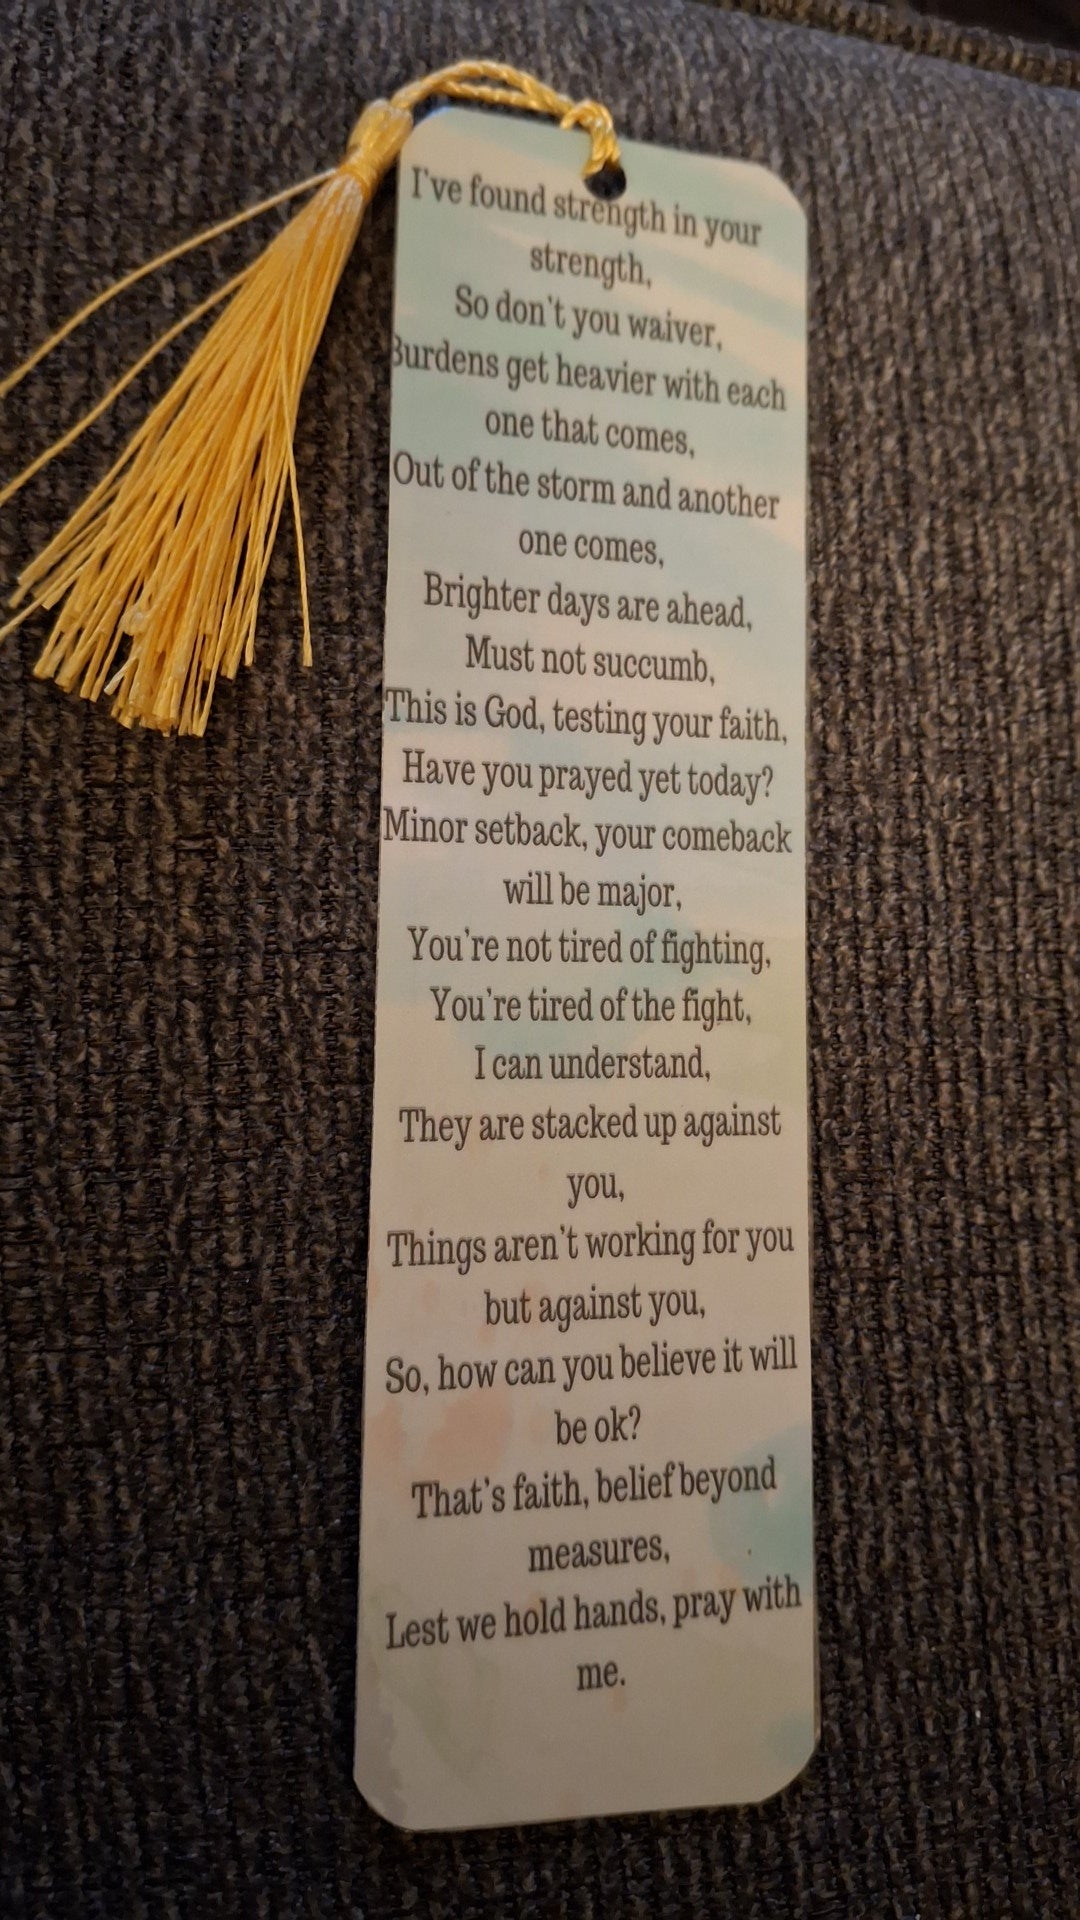 I've found strength in your
strength,
So don't you waiver,
Burdens get heavier with each
one that comes,
Out of the storm and another
one comes,
Brighter days are ahead,
Must not succumb,
This is God, testing your faith,
Have you prayed yet today?
Minor setback, your comeback
will be major,
You're not tired of fighting,
You're tired of the fight,
I can understand,
They are stacked up against
you,
Things aren't working for you
but against you,
So, how can you believe it will
be ok?
That's faith, belief beyond
measures,
Lest we hold hands, pray with
me.